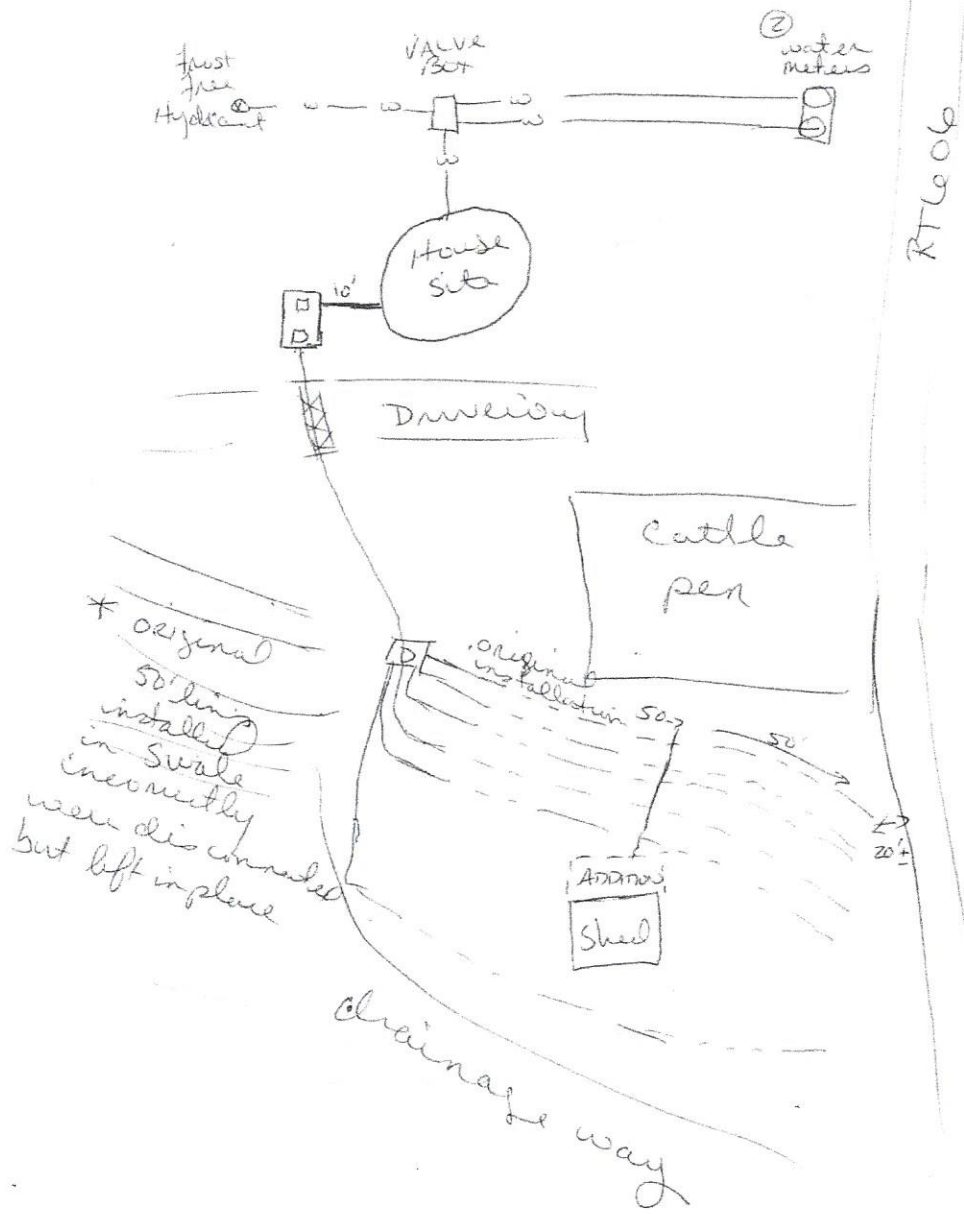 ②
water
meters
VALVE
BOX
frost
free
Hydrant
w w w w
w
w
RT 606
House
site
10'
D
Driveway
Cattle
pen
* original
50' lines
installed
in Swale
incorrectly
were disconnected
but left in place
D
original
installation 50
50'
20'±
ADDITION
Shed
drainage way